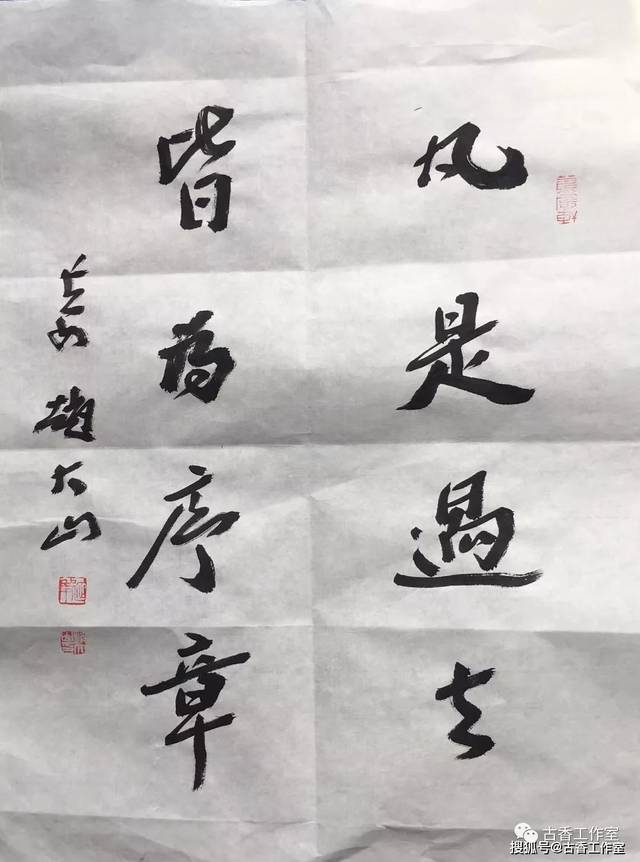 凡是過去
皆為序章
趙大山
古香工作室
搜狐号@古香工作室